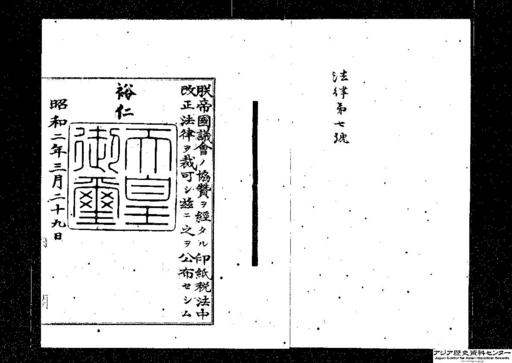 法律第七號
朕帝國議會ノ協贊ヲ經タル印紙税法中
改正法律ヲ裁可シ茲ニ之ヲ公布セシム
裕仁
天皇
御璽
昭和二年三月二十九日
アジア歴史資料センター
Japan Center for Asian Historical Records